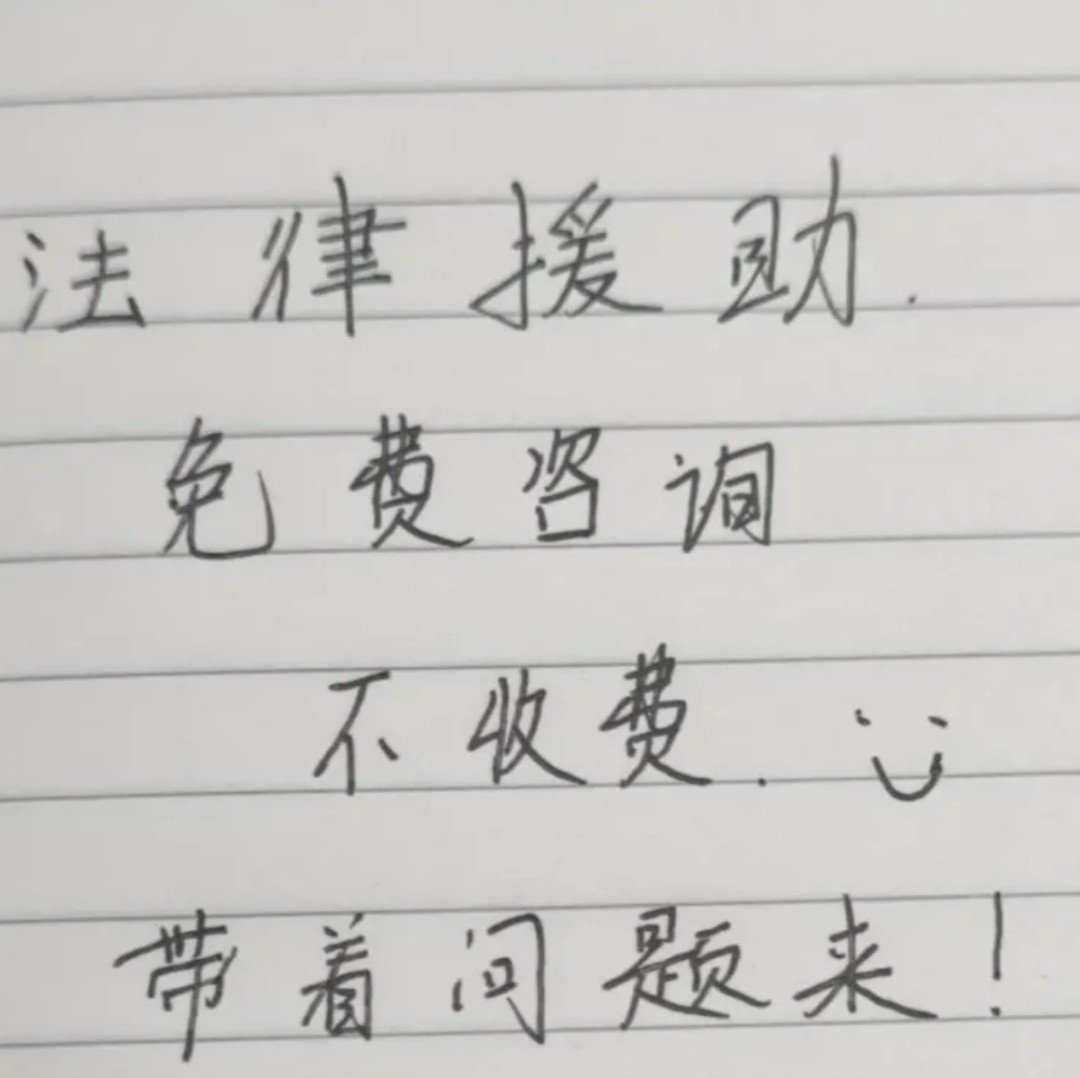 法律援助.
免费咨询
不收费.
带着问题来!